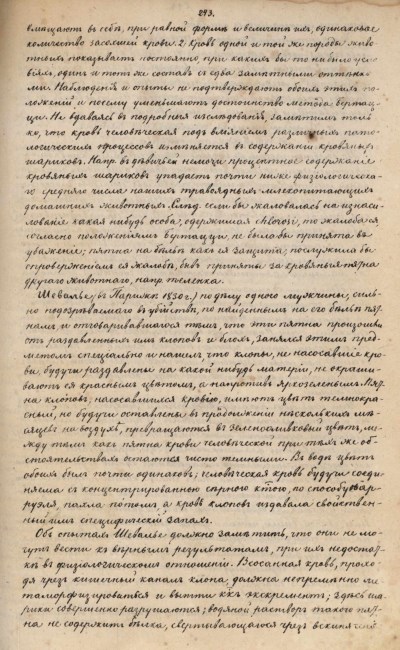 243.
вмещаютъ въ себѣ, при равной формѣ и величинѣ ихъ, одинаковое
количество засохшей крови. 2. Кровь одной и той же породы живо
тныхъ показываетъ постоянно при какихъ бы то ни было усло
віяхъ, одинъ и тотъ же составъ съ едва замѣтными оттѣнка
ми. Наблюденія и опыты не подтверждаютъ обоихъ этихъ по
ложеній и посему уменьшаютъ достоинство метода Вертац
ци. Не вдаваясь въ подробныя изслѣдованія, замѣтимъ толь
ко, что кровь человѣческая подъ вліяніемъ различныхъ пато
логическихъ процессовъ измѣняется въ содержаніи кровяныхъ
шариковъ. Напр. въ дѣвичьей немочи процентное содержаніе
кровяныхъ шариковъ упадаетъ почти ниже физіологическа
го средняго числа нашихъ травоядныхъ млекопитающихъ
домашнихъ животныхъ. Слѣд. если бы жаловалась на изнаси
лованіе какая нибудь особа, одержимая chlorosi, то жалоба ея
согласно положеніямъ Вертацци, не была бы принята въ
уваженіе; пятна на бѣльѣ какъ ея защита, послужили бы
опроверженіемъ ея жалобъ, бывъ приняты за кровяныя пятна
другаго животнаго, напр. теленка.
Шевалье, въ Парижѣ 1830 г.) по дѣлу одного мужчины, силь
но подозрѣваемаго въ убійствѣ, по найденнымъ на его бѣльѣ пят
намъ, и отговаривавшагося тѣмъ, что эти пятна произошли
отъ раздавленныхъ имъ клоповъ и блохъ, занялся этимъ пред
метомъ спеціально и нашелъ что клопы, не насосавшіе кро
ви, будучи раздавлены на какой нибудь матеріи, не окраши
ваютъ ея краснымъ цвѣтомъ, а напротивъ яркозеленымъ. Пят
на клоповъ, насосавшихся кровію, имѣютъ цвѣтъ темнокра
сный, но будучи оставлены въ продолженіи нѣсколькихъ мѣ
сяцевъ на воздухѣ, превращаются въ зеленооливковый цвѣтъ, ме
жду тѣмъ какъ пятна крови человѣческой при тѣхъ же об
стоятельствахъ остаются чисто темными. Въ водѣ цвѣтъ
обоихъ былъ почти одинаковъ; человѣческая кровь будучи соеди
няема съ концентрированною сѣрною к-тою, по способу Бар
руэля, пахла потомъ, а кровь клоповъ издавала свойствен
ный имъ специфическій запахъ.
Объ опытахъ Шевалье должно замѣтить, что они не мо
гутъ вести къ вѣрнымъ результатамъ, при ихъ недостат
кѣ въ физіологическомъ отношеніи. Всосанная кровь, прохо
дя чрезъ кишечный каналъ клопа, должна непремѣнно ме
таморфизироваться и выдти какъ экскрементъ; здѣсь ша
рики совершенно разрушаются; водяной растворъ такого пят
на не содержитъ бѣлка, свертывающагося чрезъ вскипяченіе